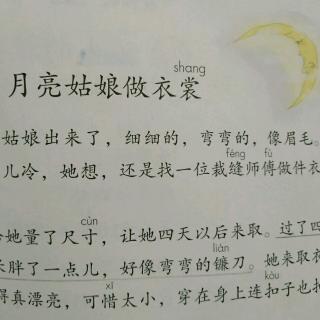 shang
月亮姑娘做衣裳
姑娘出来了，细细的，弯弯的，像眉毛。
féng fù
儿冷，她想，还是找一位裁缝师傅做件衣
cùn
她量了尺寸，让她四天以后来取。过了四
lián
胖了一点儿，好像弯弯的镰刀。她来取衣
xī kòu
得真漂亮，可惜太小，穿在身上连扣子也扣